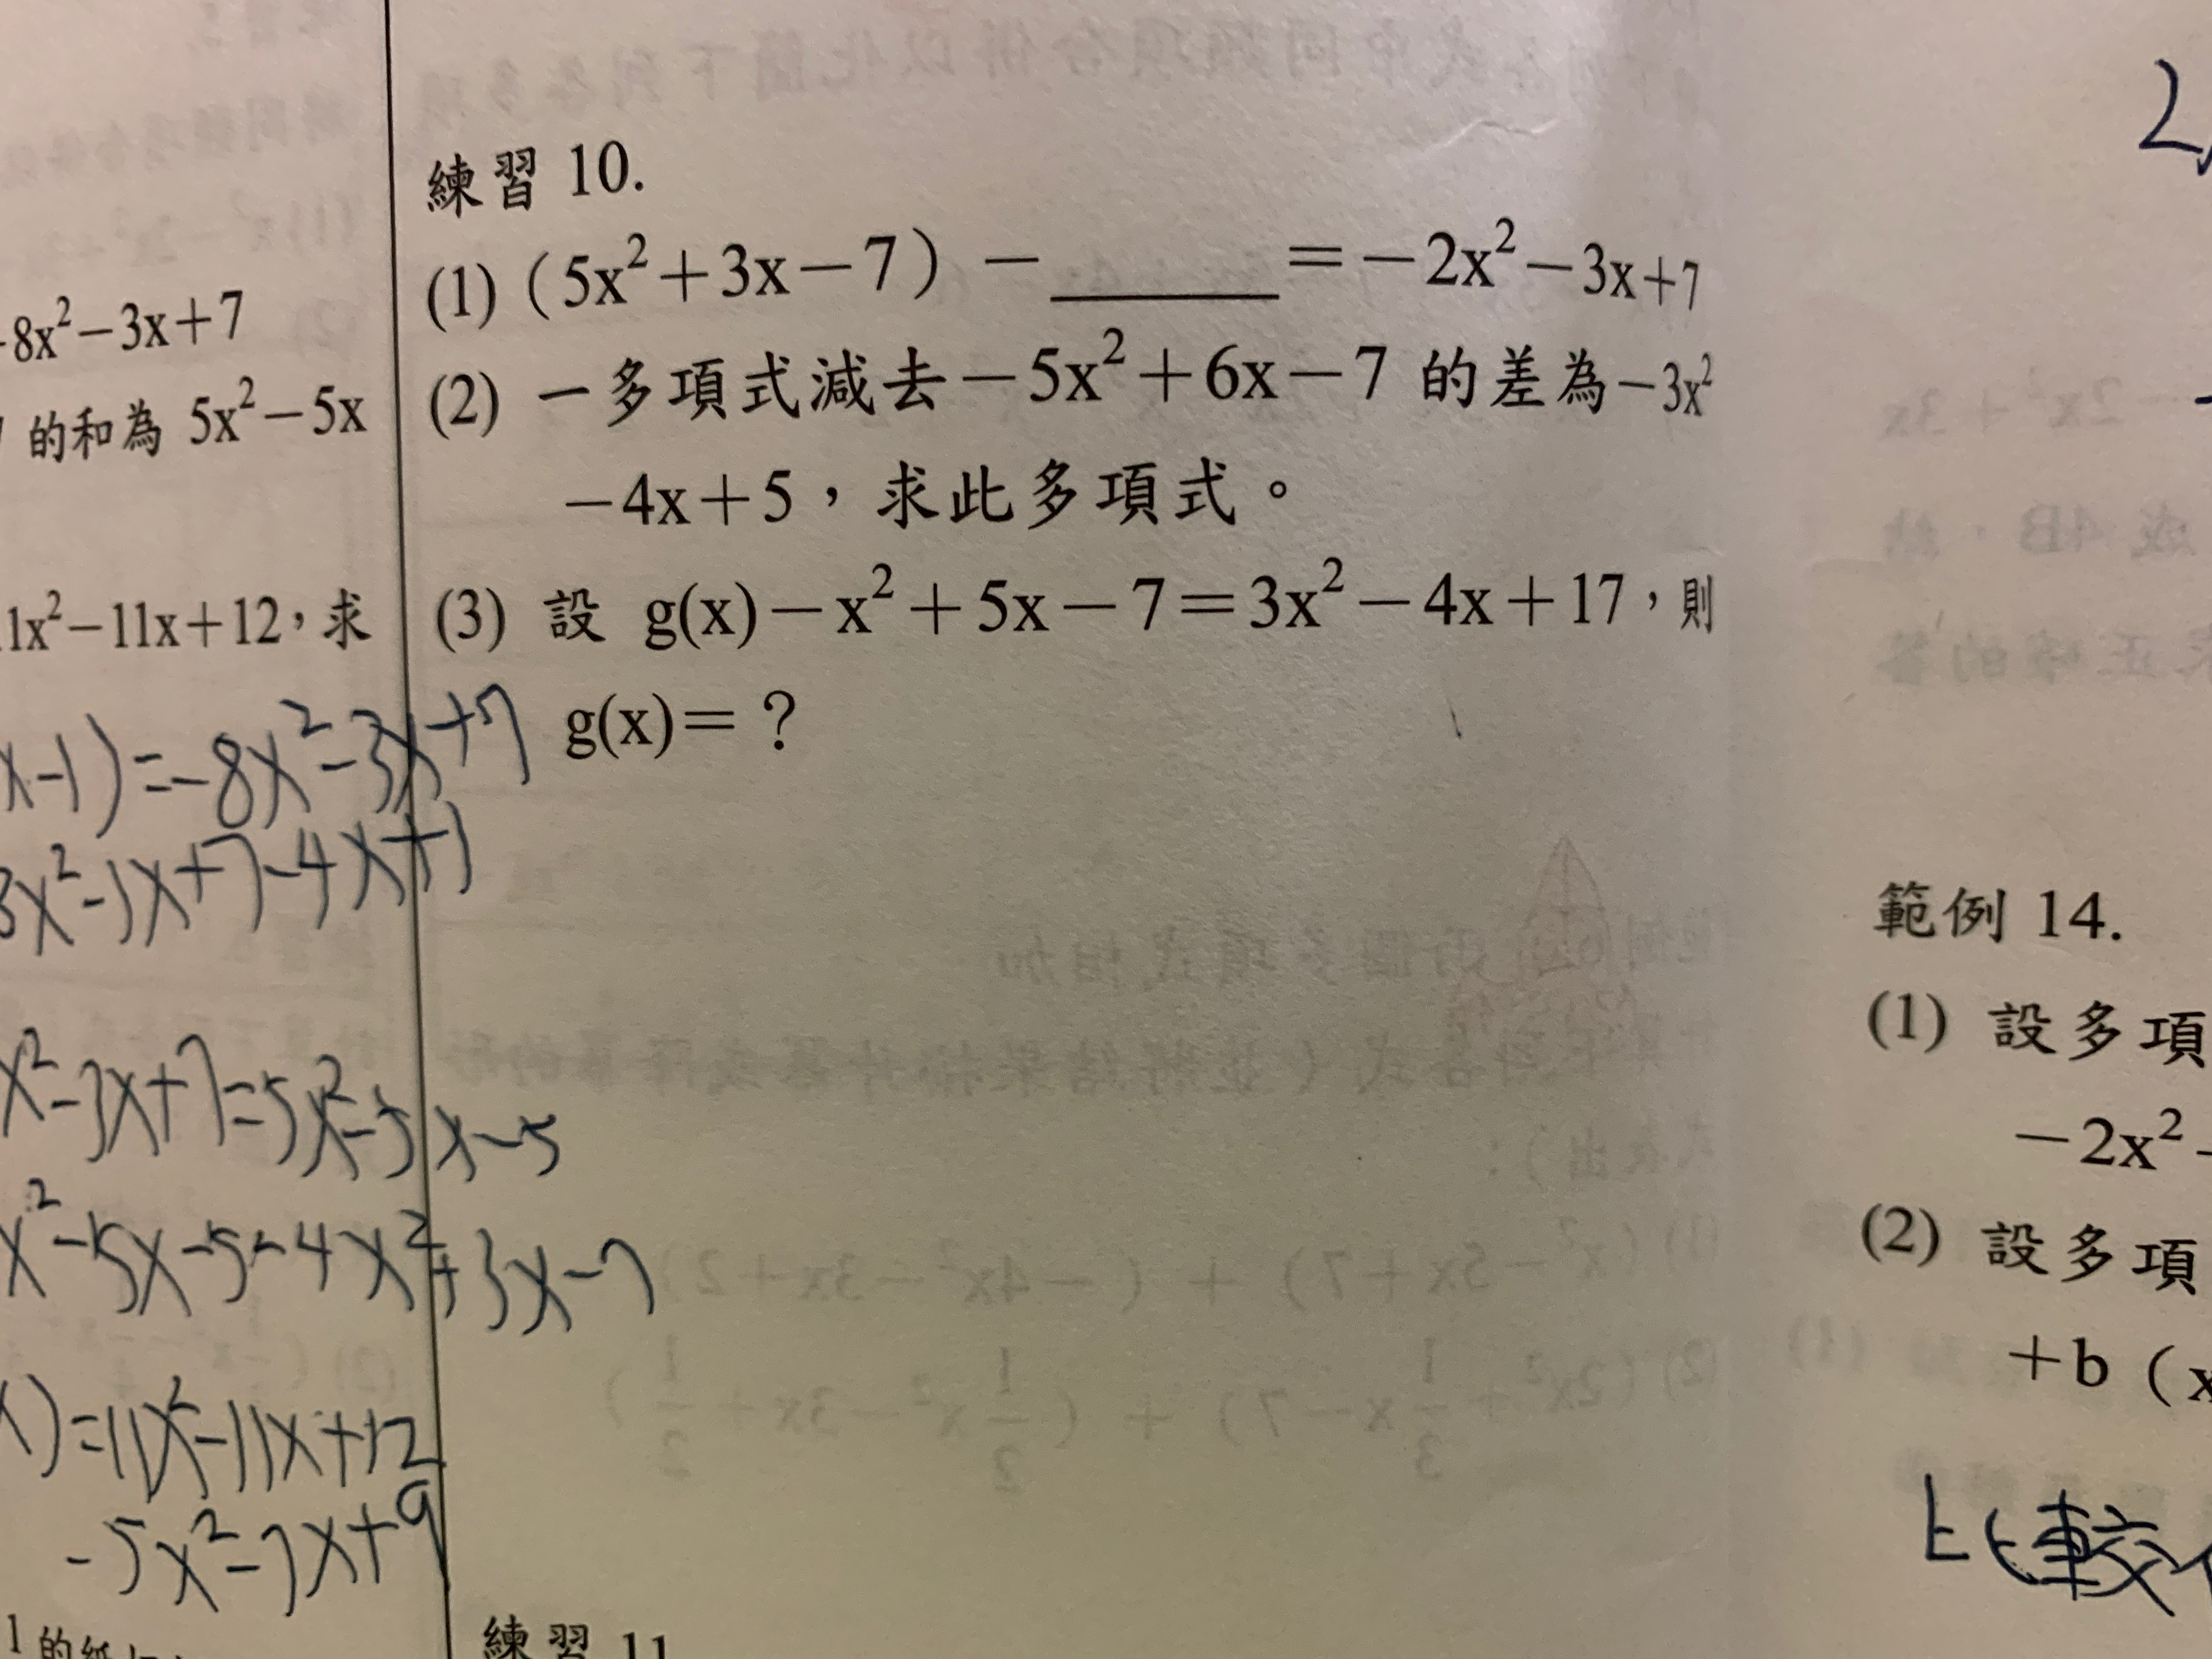 -8x²-3x+7
的和為 5x²-5x
1x²-11x+12，求
x-1)=-8x²-3x+7
3x²-3x+7-4x+1
x²-3x+7=5x²-5x-5
x²-5x-5-4x²+3x-7
x)=11x²-11x+12
-5x²-7x+9
1 的紙
練習 10.
(1)（5x²+3x-7）-______=-2x²-3x+7
(2) 一多項式減去-5x²+6x-7 的差為-3x²
-4x+5，求此多項式。
(3) 設 g(x)-x²+5x-7=3x²-4x+17，則
g(x)=？
練習 11
範例 14.
(1) 設多項
-2x²-
(2) 設多項
+b（x
比較